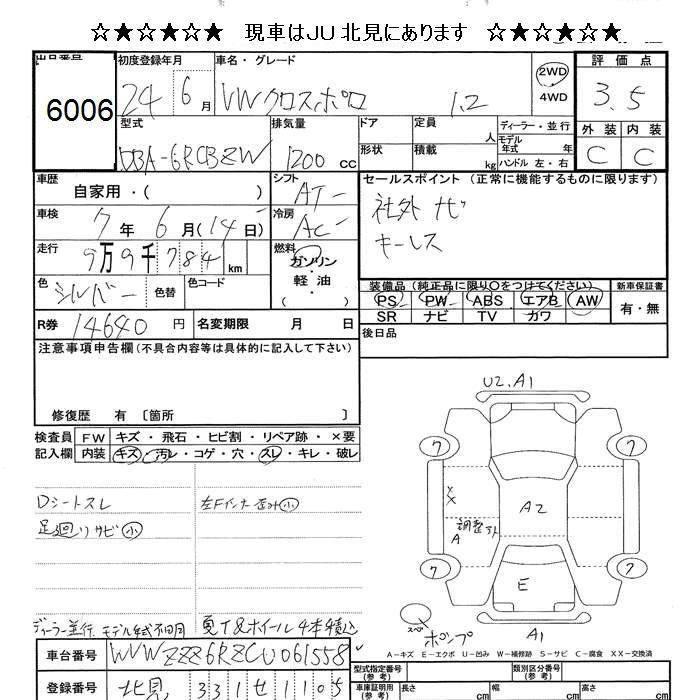 ☆★☆★☆★ 現車はJU北見にあります ☆★☆★☆★
出品番号 初度登録年月 車名・グレード 評価点
6006 24 6月 VWクロスポロ 1.2 2WD 4WD 3.5
型式 排気量 ドア 定員 人 ディーラー・並行 外装 内装
DBA-6RCBZW 1200cc 形状 積載 kg モデル年式 年 ハンドル 左・右 C C
車歴 自家用・( ) シフト AT セールスポイント (正常に機能するものに限ります)
車検 7年 6月(14日) 冷房 AC 社外ナビ
走行 9万9千784km 燃料 ガソリン・軽油( ) キーレス
色 シルバー 色替 色コード 装備品 (純正品に限り○をつけてください) 新車保証書
PS PW ABS エアB AW 有・無
R券 14640円 名変期限 月 日 SR ナビ TV カワ
注意事項申告欄(不具合内容等は具体的に記入して下さい) 後日品
修復歴 有 〔箇所 〕
U2.A1
検査員 FW キズ・飛石・ヒビ割・リペア跡・×要
記入欄 内装 キズ・汚レ・コゲ・穴・スレ・キレ・破レ
7 7
Dシートスレ 左Fインナー歪ミ小
足廻りサビ小
XX A2
A 調整
7 7
E
スペ ポンプ A1
ディーラー並行、モデル年式不明 夏T&ホイール4本積込
A-キズ E-エクボ U-凹み W-補修跡 S-サビ C-腐食 XX-交換済
車台番号 WVWZZZ6RZCU061558
型式指定番号(参考) 類別区分番号(参考)
登録番号 北見 331 せ 1105
車庫証明用(参考) 長さ cm 幅 cm 高さ cm